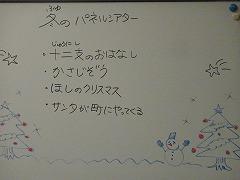 ふゆ
冬のパネルシアター
じゅうにし
・十二支のおはなし
・かさじぞう
・ほしのクリスマス
・サンタが町にやってくる